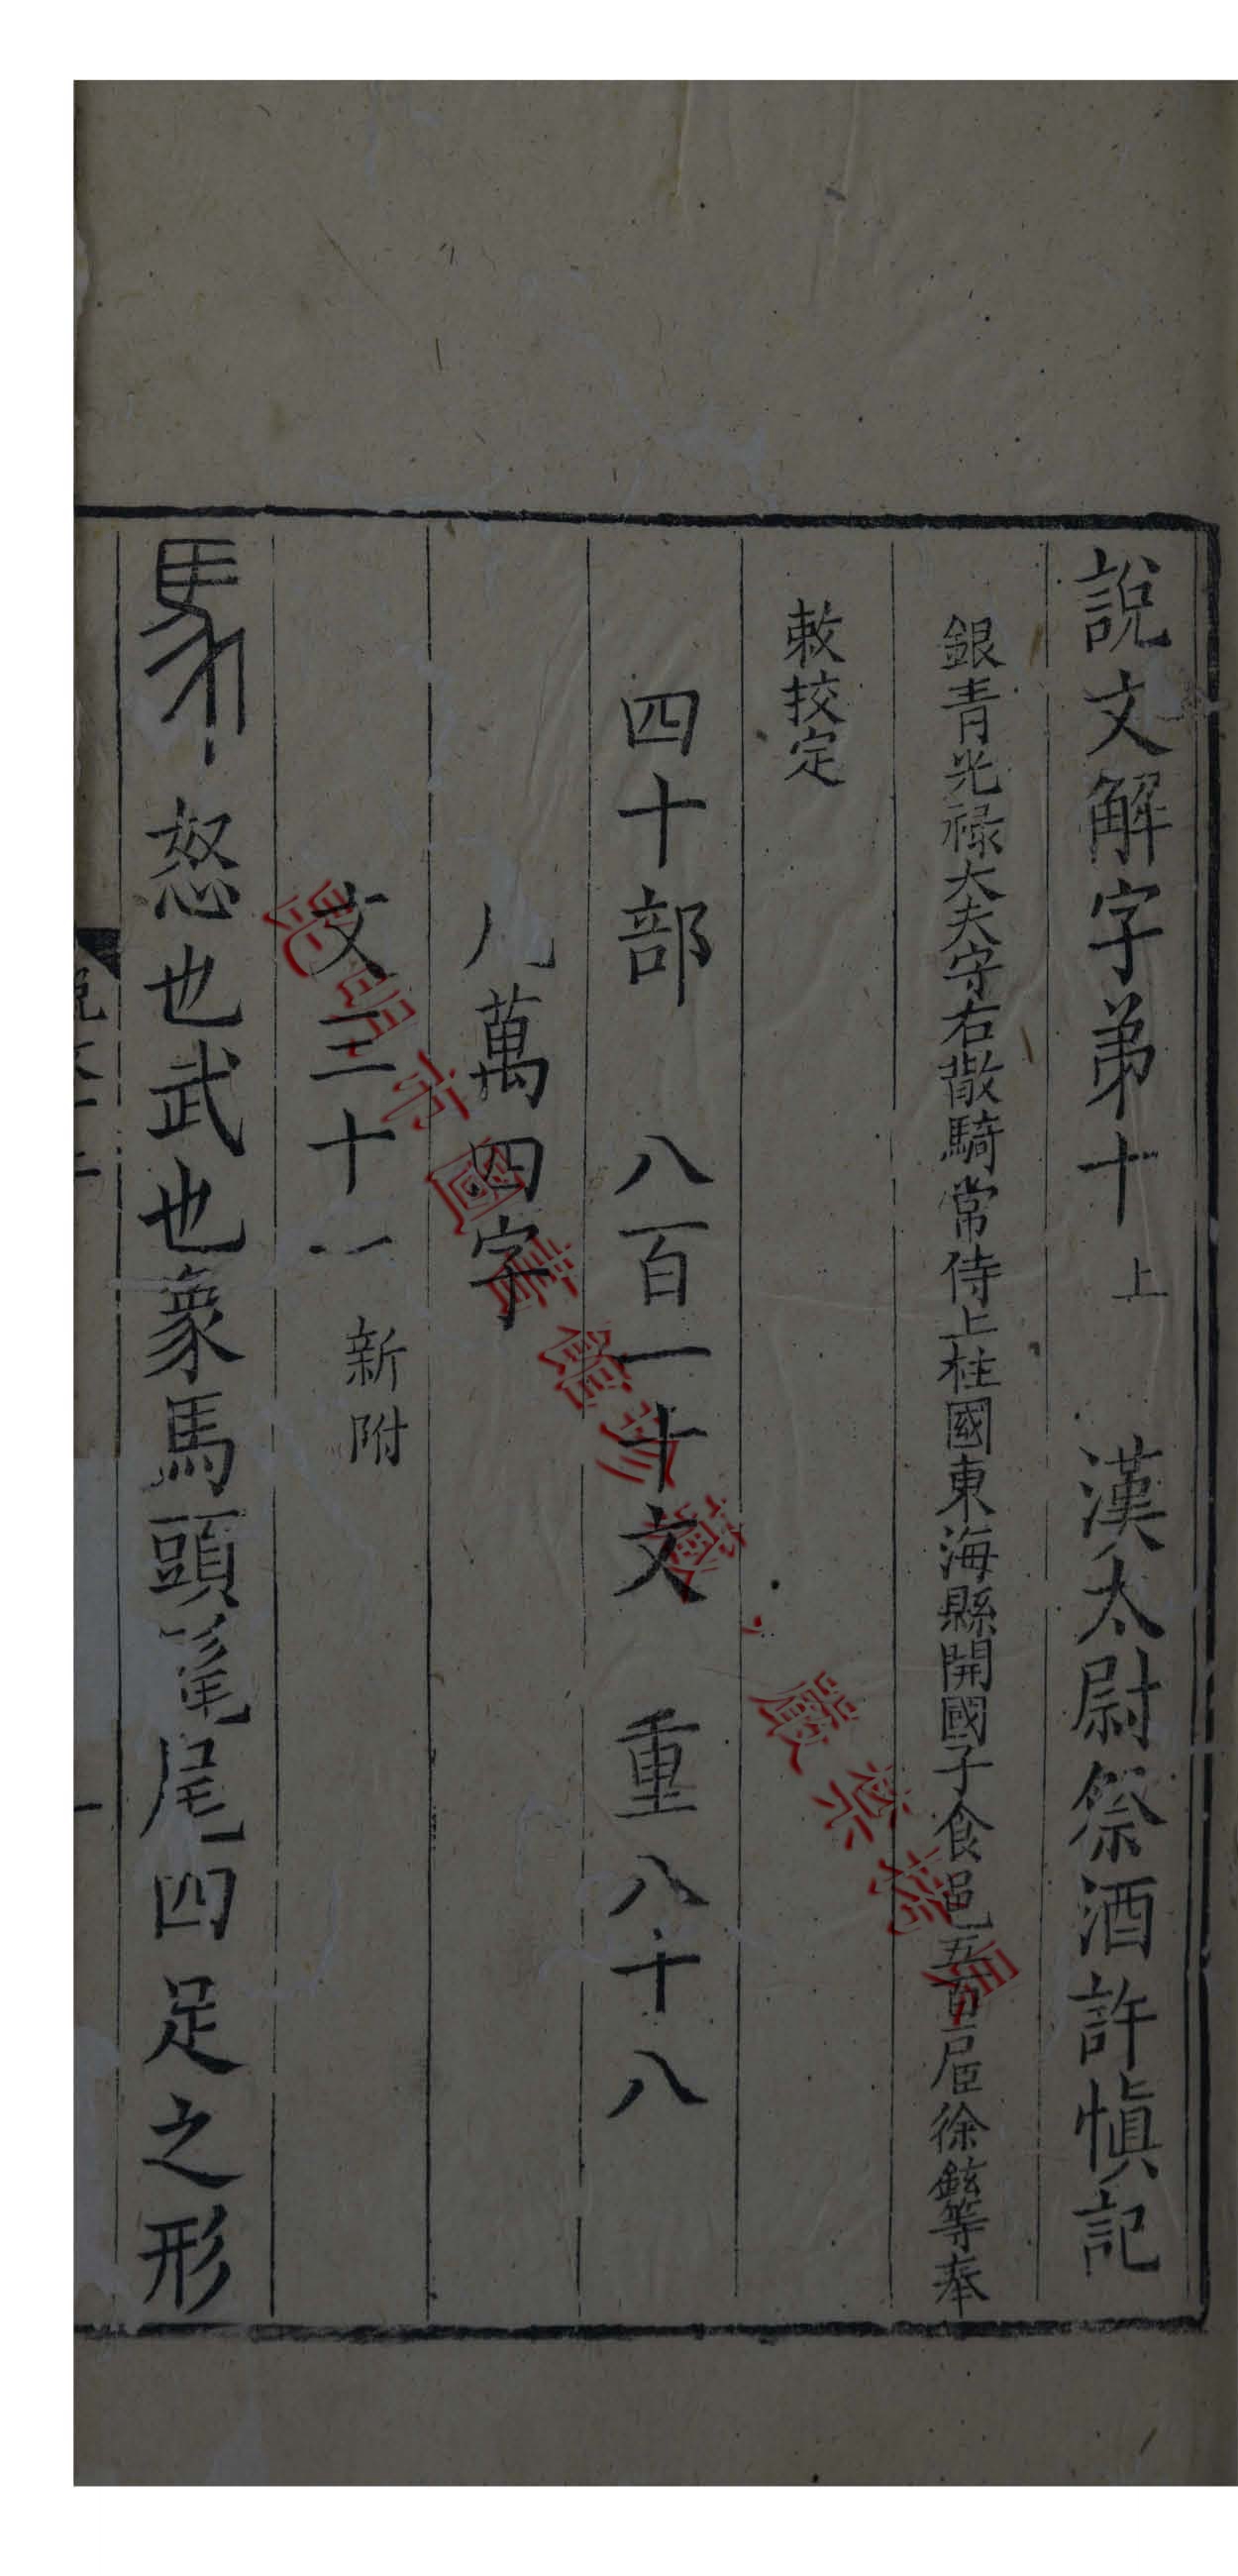 說文解字弟十 上 漢太尉祭酒許愼記
銀青光禄大夫守右散騎常侍上柱國東海縣開國子食邑五百戶臣徐鉉等奉
敕挍定
四十部 八百一十文 重八十八
凡萬四字
文三十一 新附
馬 怒也武也象馬頭髦尾四足之形
說文十上
一
昆明市圖書館珍藏，嚴禁擅用